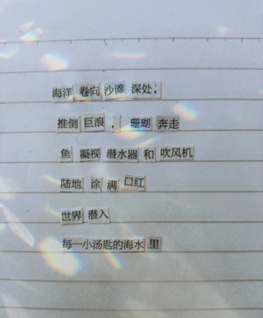 海洋 卷向 沙滩 深处;
推倒 巨浪 , 珊瑚 奔走
鱼 凝视 潜水器 和 吹风机
陆地 涂 满 口红
世界 潜入
每一小汤匙的海水 里